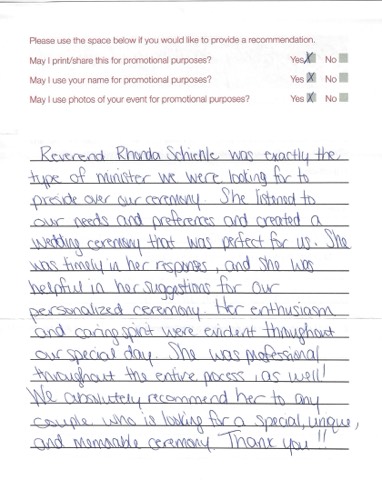 Please use the space below if you would like to provide a recommendation.
May I print/share this for promotional purposes? Yes X No
May I use your name for promotional purposes? Yes X No
May I use photos of your event for promotional purposes? Yes X No
Reverend Rhonda Schienle was exactly the
type of minister we were looking for to
preside over our ceremony. She listened to
our needs and preferences and created a
wedding ceremony that was perfect for us. She
was timely in her responses, and she was
helpful in her suggestions for our
personalized ceremony. Her enthusiasm
and caring spirit were evident throughout
our special day. She was professional
throughout the entire process, as well!
We absolutely recommend her to any
couple who is looking for a special, unique,
and memorable ceremony. Thank you!!